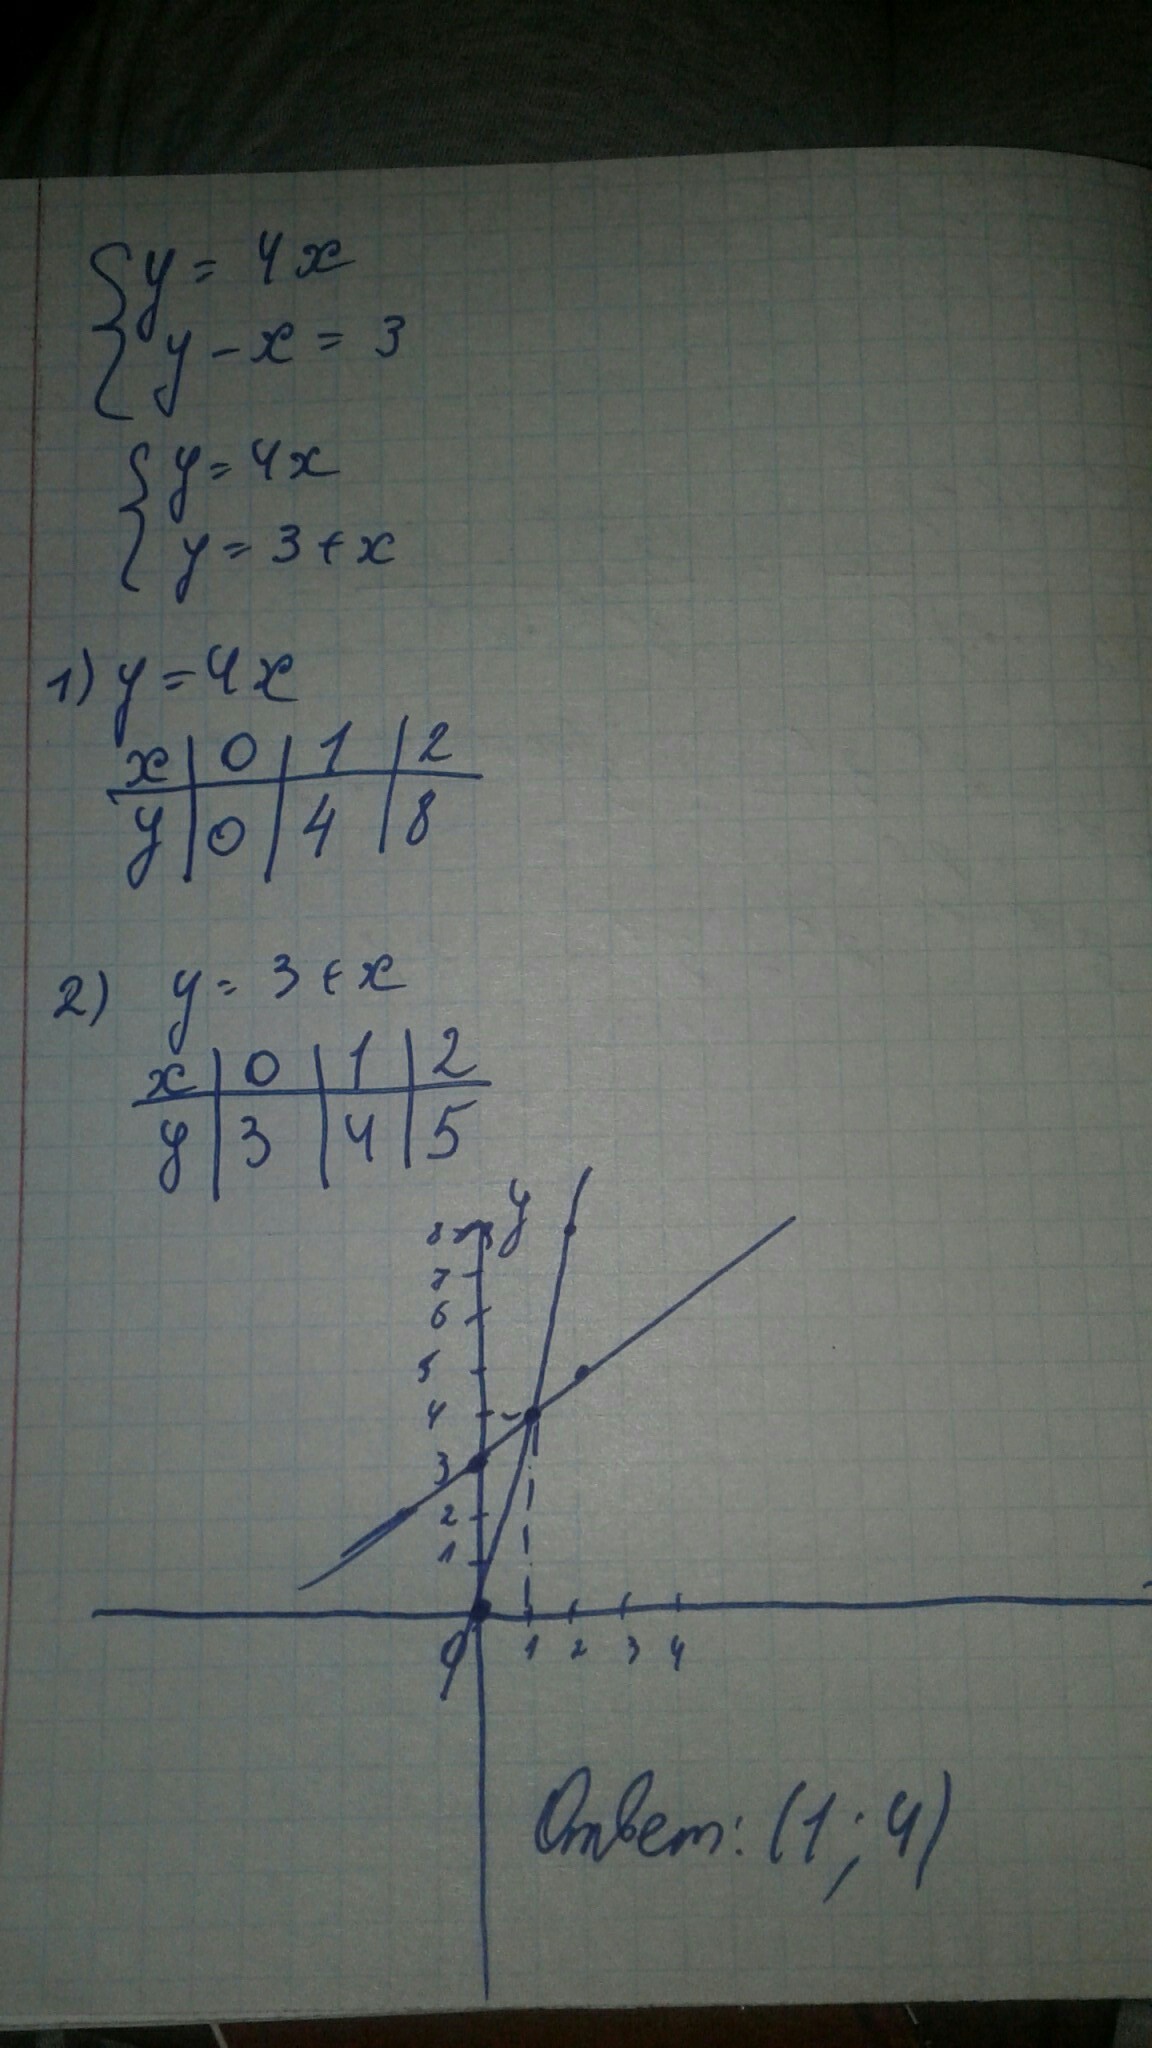 y = 4x
y - x = 3
y = 4x
y = 3 + x
1) y = 4x
x 0 1 2
y 0 4 8
2) y = 3 + x
x 0 1 2
y 3 4 5
y
8
7
6
5
4
3
2
1
0 1 2 3 4
Ответ: (1; 4)